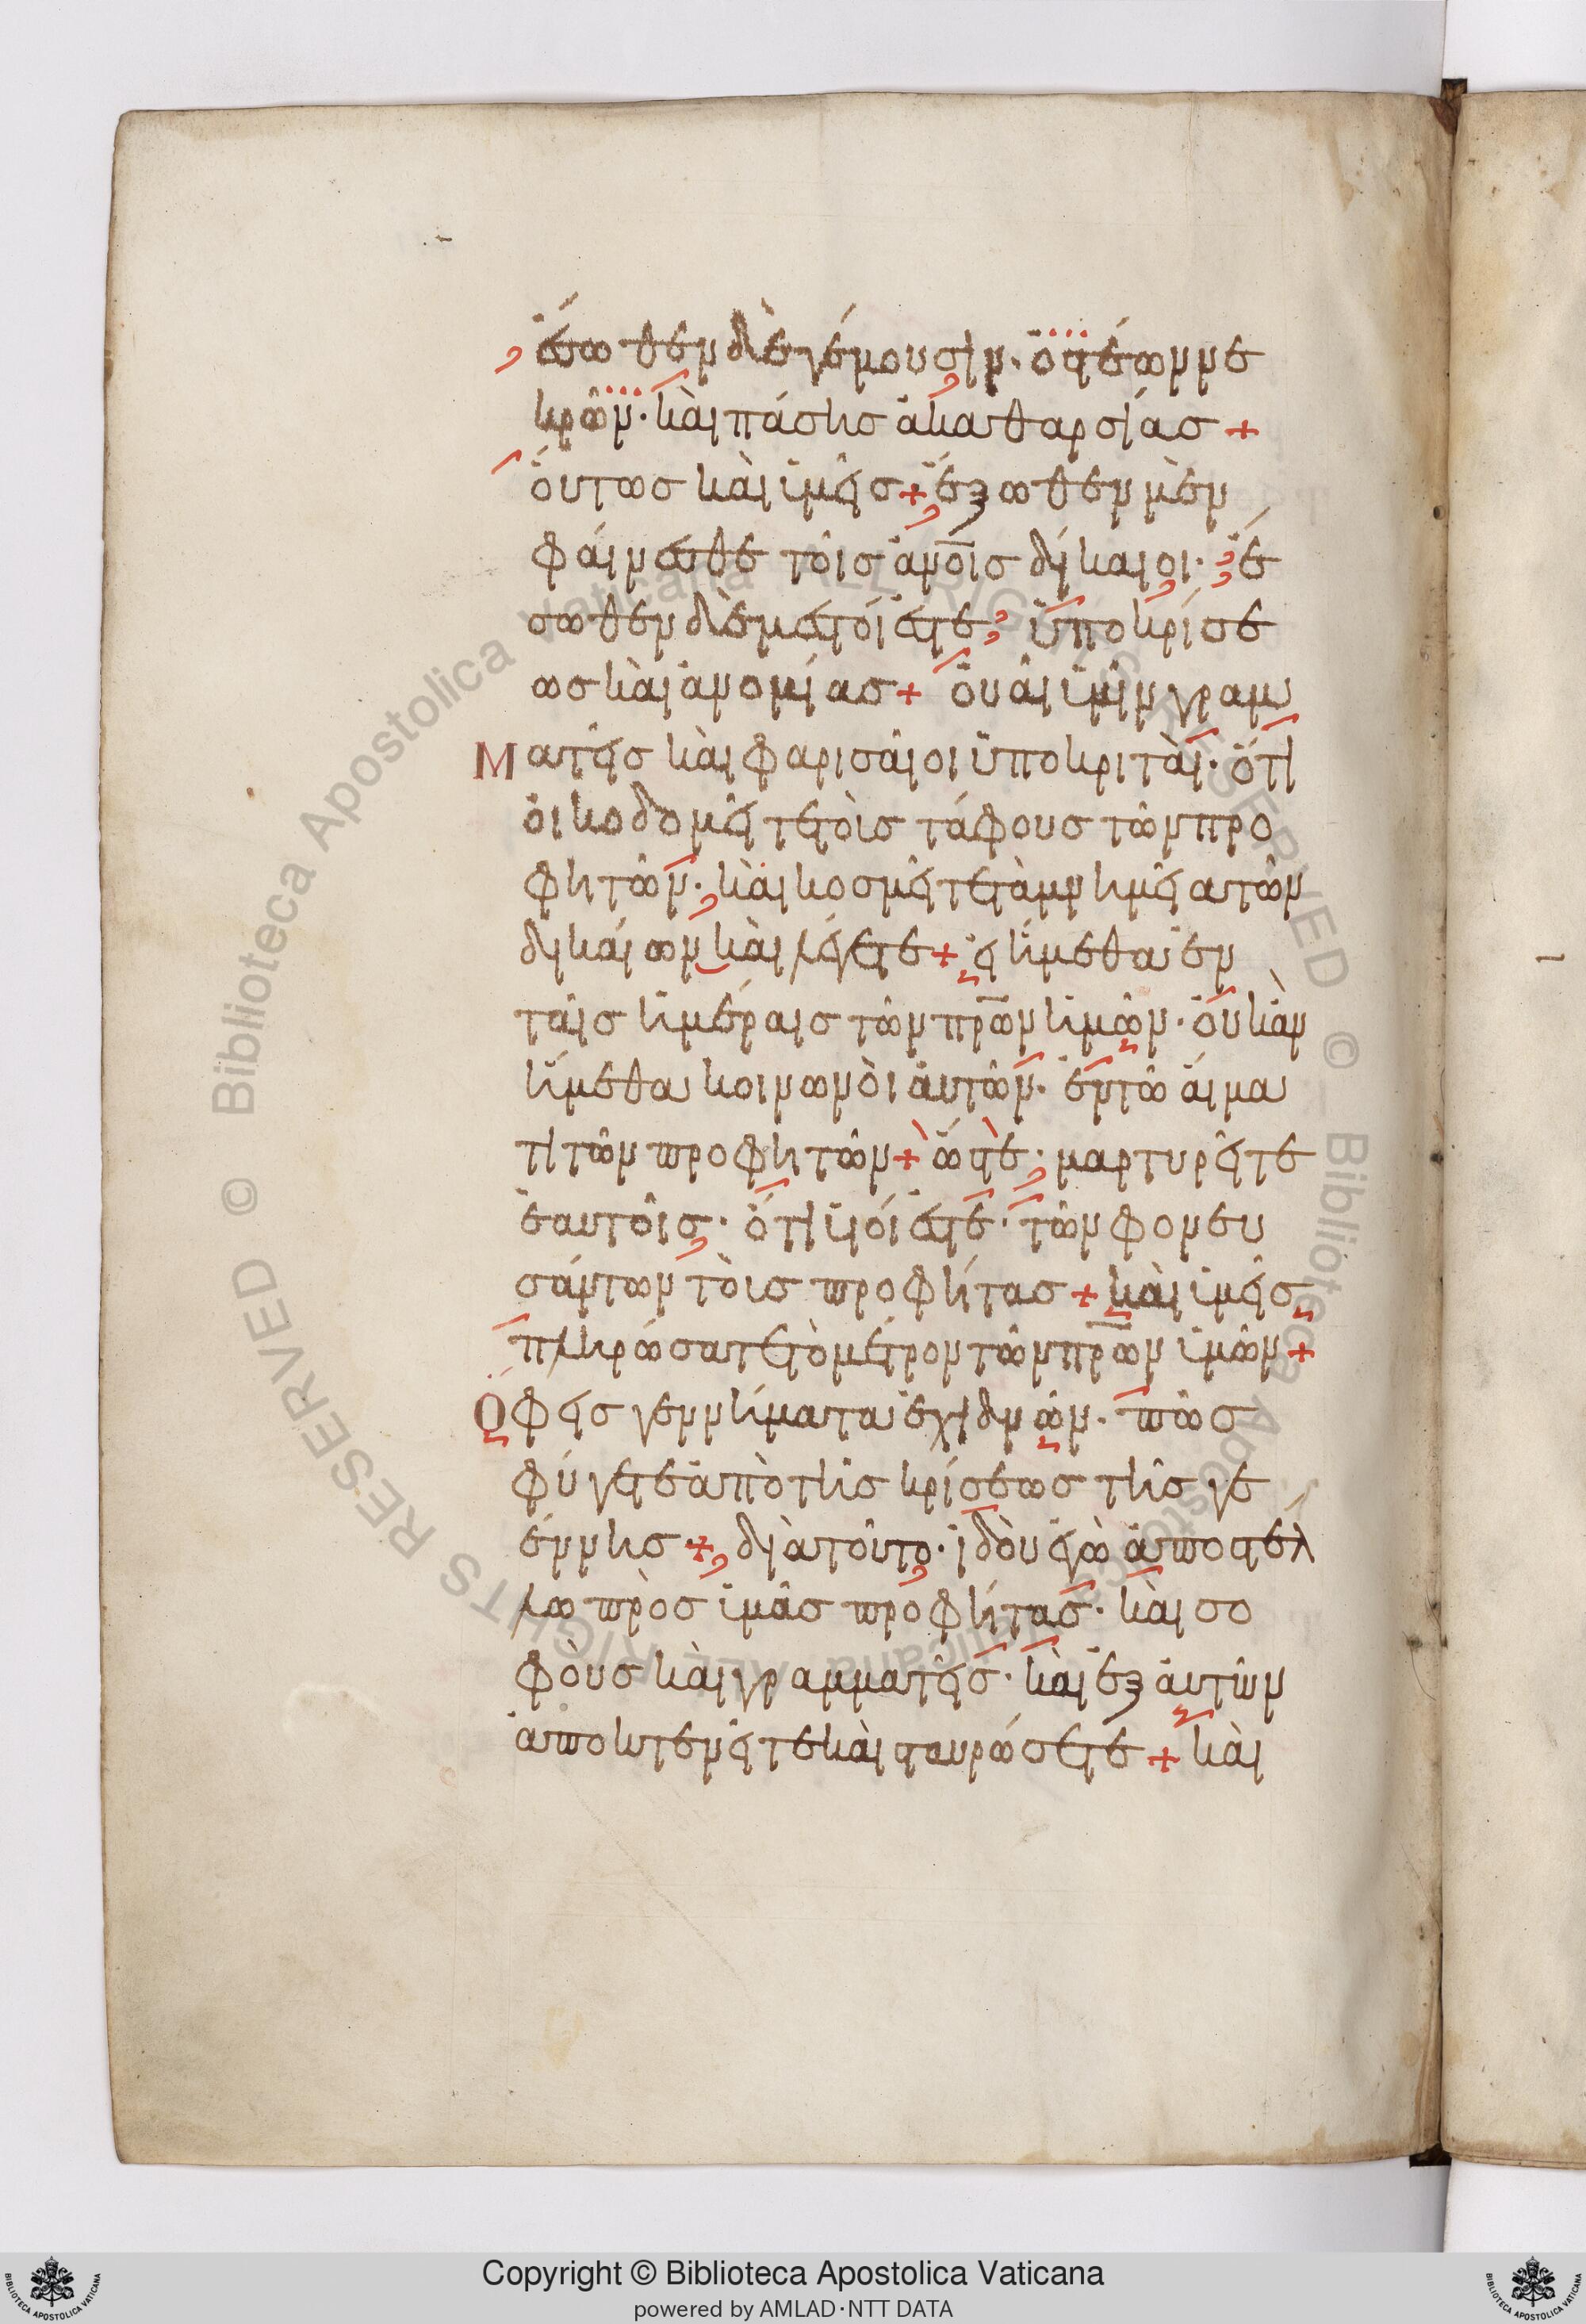 ἔσωθεν δὲ γέμουσιν· ὀστέων νε
κρῶν· καὶ πάσης ἀκαθαρσίας +
ὅυτως καὶ ὑμεῖς + ἔξωθεν μὲν
φαίνεσθε τοῖς ἀν̅ο̅ις δίκαιοι· ἔ
σωθεν δὲ μεστοί ἐστε· ὑποκρίσε
ως καὶ ἀνομίας + ὀυαὶ ὑμῖν γραμ
Ματεῖς καὶ φαρισαῖοι ὑποκριταὶ· ὅτι
ὀικοδομεῖτε τοῖς τάφους τῶν προ
φητῶν· καὶ κοσμεῖτε τὰ μνημεῖα τῶν
δικαίων καὶ λέγετε + εἰ ἤμεθα ἐν
ταῖς ἡμέραις τῶν π̅ρ̅ων ἡμῶν· ὀυκ ἂν
ἤμεθα κοινωνοὶ ἀυτῶν· ἐν τῶ ἅιμα
τι τῶν προφητῶν + ὥστε· μαρτυρεῖτε
ἑαυτοῖς· ὅτι ὑιοί ἐστε· τῶν φονευ
σάντων τοῖς προφήτας + καὶ ὑμεῖς
πληρώσατε τὸ μέτρον τῶν π̅ρ̅ων ὑμῶν +
Ὄφεις γεννήματα ἐχιδνῶν· πῶς
φύγετε ἀπὸ τῆς κρίσεως τῆς γε
έννης + διὰ τοῦτο· ἰδοὺ ἐγὼ ἀποστέλ
λω πρὸς ὑμᾶς προφήτας· καὶ σο
φοὺς καὶ γραμματεῖς· καὶ ἐξ ἀυτῶν
ἀποκτενεῖτε καὶ σταυρώσετε + καὶ
Copyright © Biblioteca Apostolica Vaticana
powered by AMLAD·NTT DATA